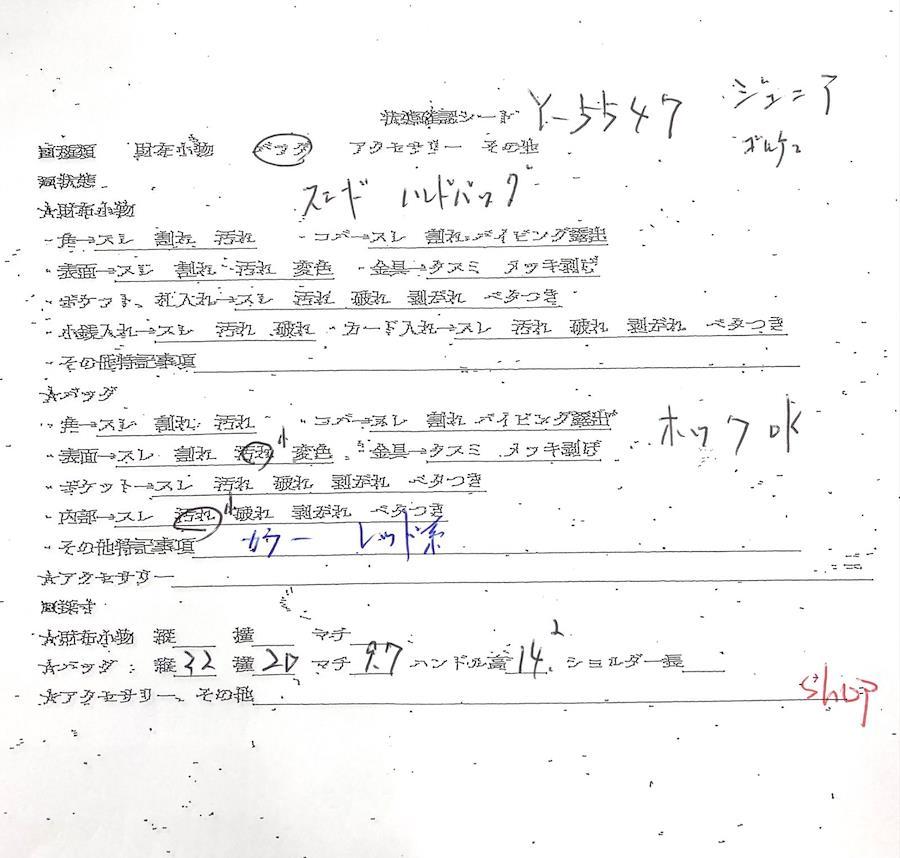 状態確認シート Y-5547 ジュニア
ボルケーノ
■種類 財布小物 バッグ アクセサリー その他
■状態
スエード ハンドバッグ
★財布小物
・角→スレ 割れ 汚れ ・コバ→スレ 割れ パイピング露出
・表面→スレ 割れ 汚れ 変色 ・金具→クスミ メッキ剥げ
・ポケット、札入れ→スレ 汚れ 破れ 剥がれ ベタつき
・小銭入れ→スレ 汚れ 破れ ・カード入れ→スレ 汚れ 破れ 剥がれ ベタつき
・その他特記事項
★バッグ
・角→スレ 割れ 汚れ ・コバ→スレ 割れ パイピング露出
ホック OK
・表面→スレ 割れ 汚れ 小 変色 ・金具→クスミ メッキ剥げ
・ポケット→スレ 汚れ 破れ 剥がれ ベタつき
・内部→スレ 汚れ 小 破れ 剥がれ ベタつき
・その他特記事項 カラー レッド系
★アクセサリー
■採寸
★財布小物 縦 横 マチ
★バッグ 縦 32 横 20 マチ 9.7 ハンドル高 14.2 ショルダー長
★アクセサリー、その他
shop